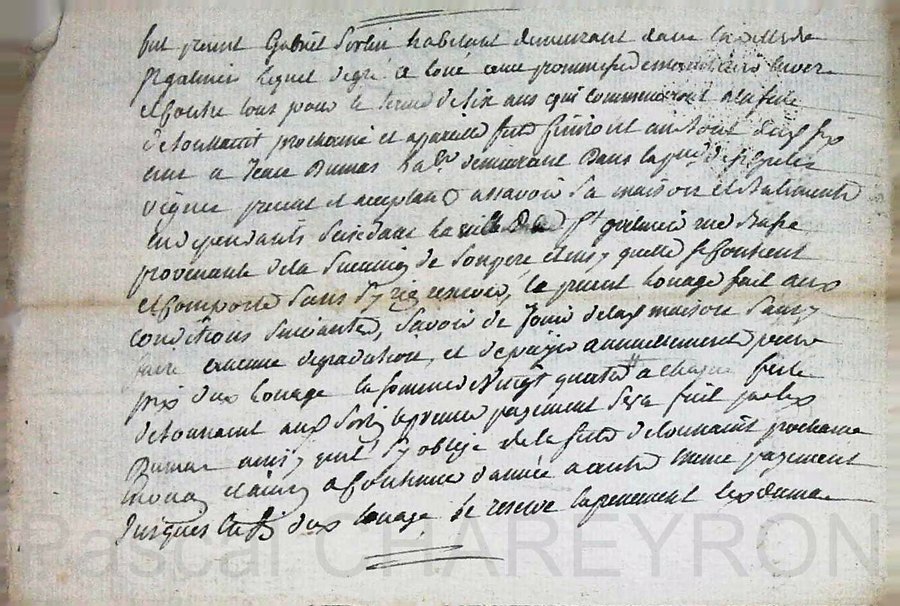 fut present Gabriel Sorlin habitant demeurant dans la ville de
St galmier lequel degré a loué avec prommesse de maintenir envers
et contre tous pour le terme de six ans qui commenceront a la fete
de toussaint prochaine et a pareille fete finiront les six
ans a Jean Dumas demeurant dans la
present et acceptant assavoir sa maison et batiments
en dependants scise dans la ville de St galmier rue Basse
provenante de la succession de son pere et ainsy quelle se contient
et comporte sans s'y rien reserver, le present louage fait aux
conditions suivantes, savoir de jouir de la maison sans y
faire aucune degradation, et de payer annuellement pour
prix dud louage la somme vingt quatre a chaque feste
de toussaint aud Sorlin le premier payement sera fait par led
Dumas ainsy quil s'y oblige de la fete de toussaint prochaine
en un an et ainsy a continuer d'année a autre meme payement
jusques dud louage se reserve led Dumas
Pascal CHAREYRON